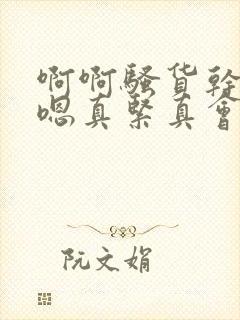 啊啊骚货幹
嗯真紧真會
阮文娟